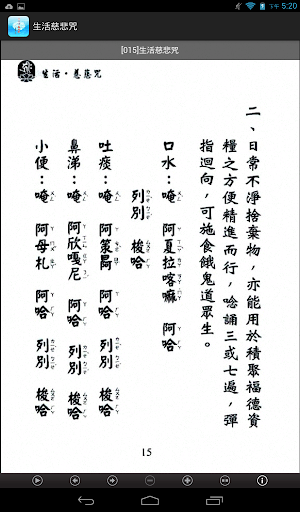 下午 5:20
生活慈悲咒
[015]生活慈悲咒
生活・慈悲咒
二、日常不淨捨棄物，亦能用於積聚福德資
糧之方便精進而行，唸誦三或七遍，彈
指迴向，可施食餓鬼道眾生。
口水：唵 阿夏拉喀嘛 阿哈
列別 梭哈
吐痰：唵 阿箂曷 阿哈 列別 梭哈
鼻涕：唵 阿欣嘎尼 阿哈 列別 梭哈
小便：唵 阿母札 阿哈 列別 梭哈
15